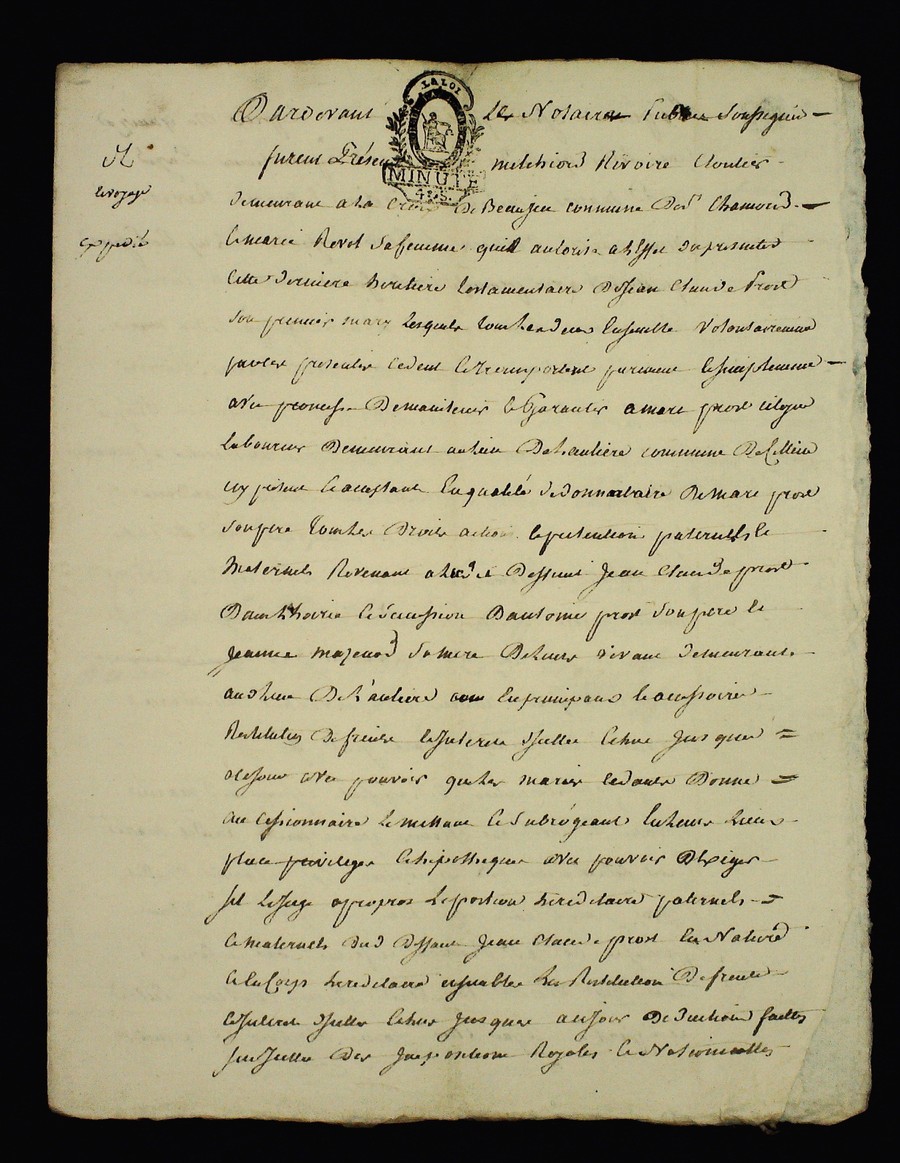 LA LOI
MINUTE
4.S.
envoyé
expédié
Pardevant Le Notaire Public Soussigné
furent Présens melchiord Rivoire Cloutier
demeurant a La Croix De Beaujeu commune De St Chamond
et marie Revol sa femme quil autorise a leffet du presentes
Cette derniere heritiere testamentaire De Jean Claude Prost
Son premier mary Lesquels tous les deux Ensemble Volontairement
par les presentes Cedent et transportent purement et simplement
avec promesse De maintenir et Garantir a marc prost citoyen
Laboureur Demeurant au lieu De commune De
icy present et acceptant En qualité de donnataire De marc prost
Son pere tous les Droits actions et pretentions paternels et
Maternels Revenant Deffunt Jean Claude prost
Dans et Succession D'antoine prost Son pere et
Jeanne mazenod Sa mere De leur vivant demeurant
au lieu De En principaux et accessoires
Restitution De fruits et Interets Diceux Echus Jusques
a ce jour avec pouvoir que les mariés cedants Donne
au cessionnaire Le mettant et Subrogeant En leurs Lieux
place privileges et hipotheques avec pouvoir D'Exiger
Sil Le Juge apropos La portion hereditaire paternels
et maternels dud Deffunt Jean Claude prost En Nature
et En Corps hereditaire ensemble Les Restitution De fruits
et Interets Diceux Echus Jusques a ce jour Deduction faites
Sur Iceux Des Impositions Royales et Nationnalles